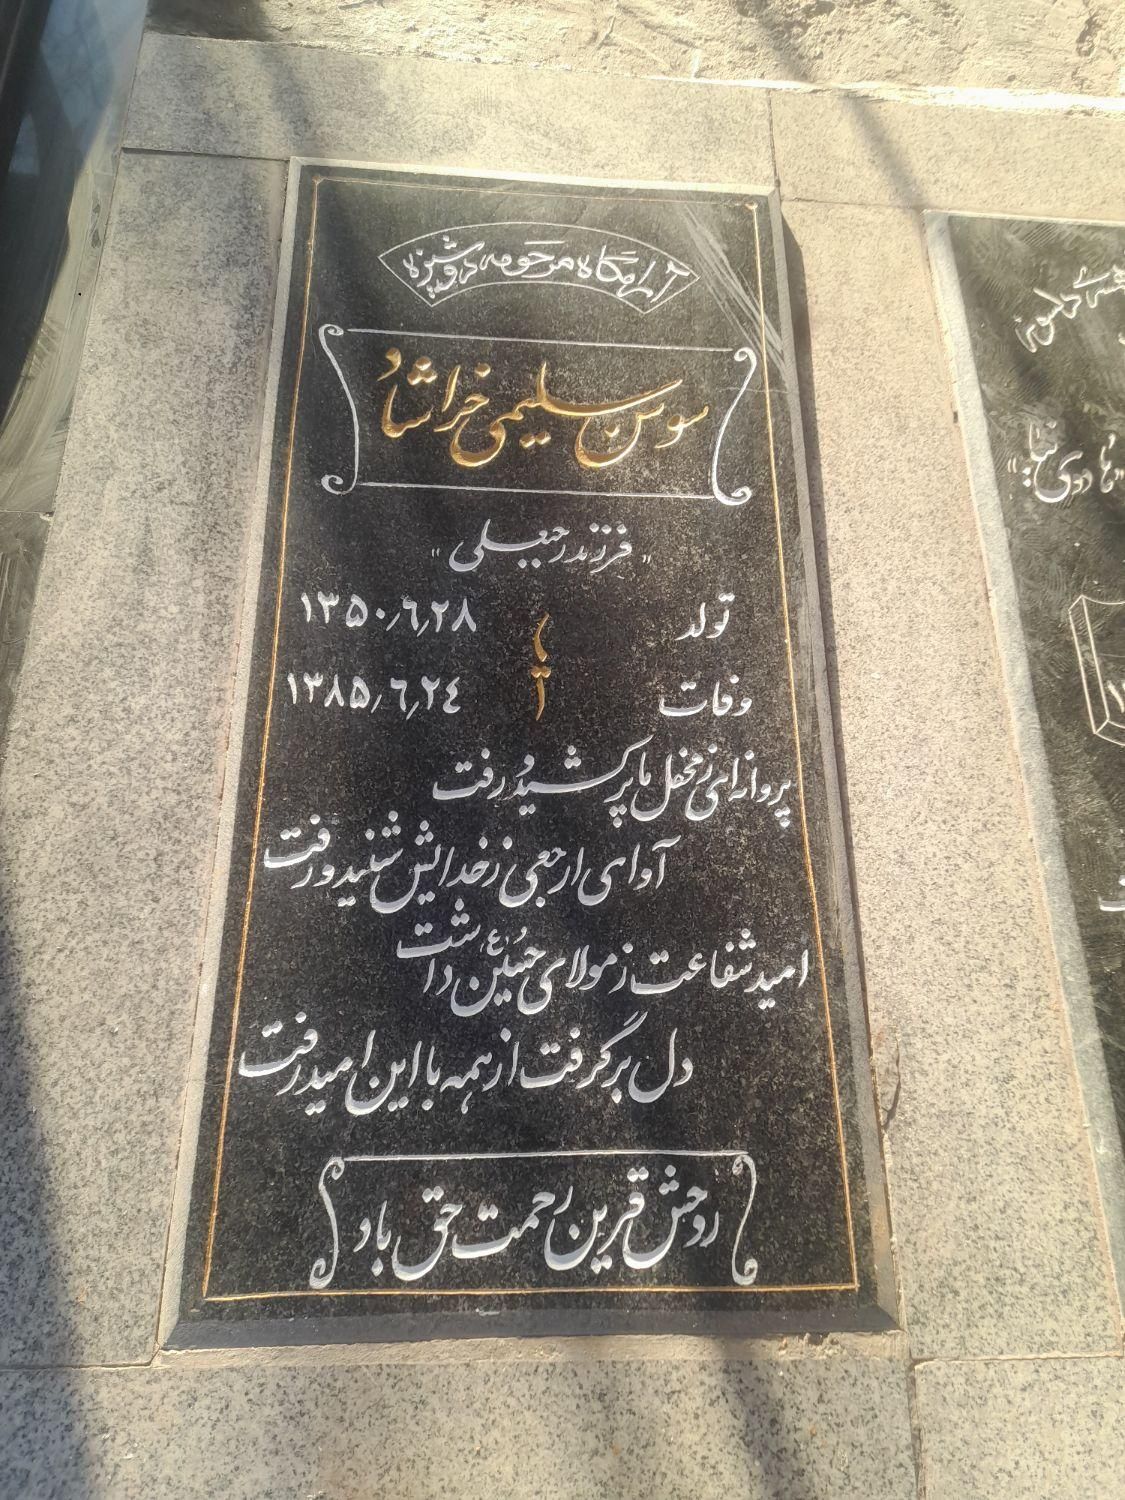 آرامگاه مرحومه دوشیزه
سوسن سلیمی خراشاد
"فرزند رجبعلی"
تولد ۱۳۵۰٫٦٫۲۸
وفات ۱۳۸۵٫٦٫۲٤
پروانه‌ای ز محفل ما پر کشید و رفت
آوای ارجعی ز خدایش شنید و رفت
امید شفاعت ز مولای حسین ع داشت
دل بر گرفت از همه با این امید رفت
روحش قرین رحمت حق باد